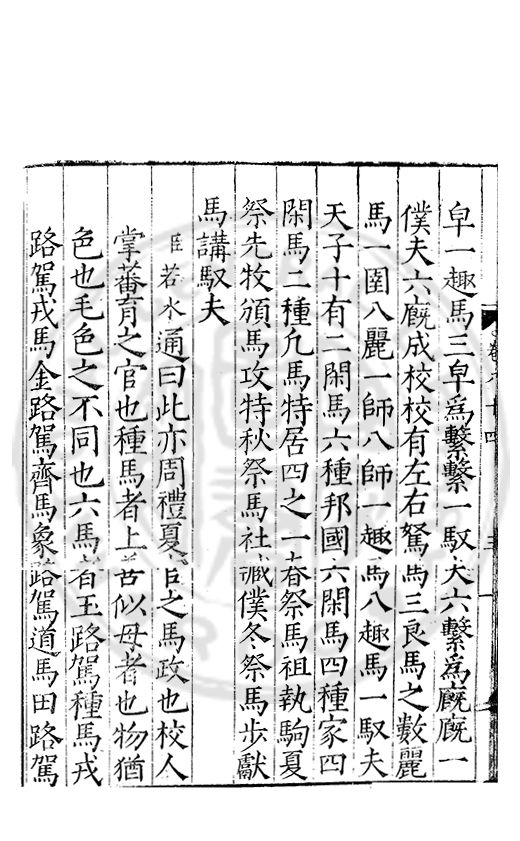 皁一趣馬三皁爲繫繫一馭夫六繫爲廐廐一
僕夫六廐成校校有左右駑馬三良馬之數麗
馬一圉八麗一師八師一趣馬八趣馬一馭夫
天子十有二閑馬六種邦國六閑馬四種家四
閑馬二種凢馬特居四之一春祭馬祖執駒夏
祭先牧頒馬攻特秋祭馬社臧僕冬祭馬步獻
馬講馭夫
臣若水通曰此亦周禮夏官之馬政也校人
掌蕃育之官也種馬者上善似母者也物猶
色也毛色之不同也六馬者玉路駕種馬戎
路駕戎馬金路駕齊馬象路駕道馬田路駕